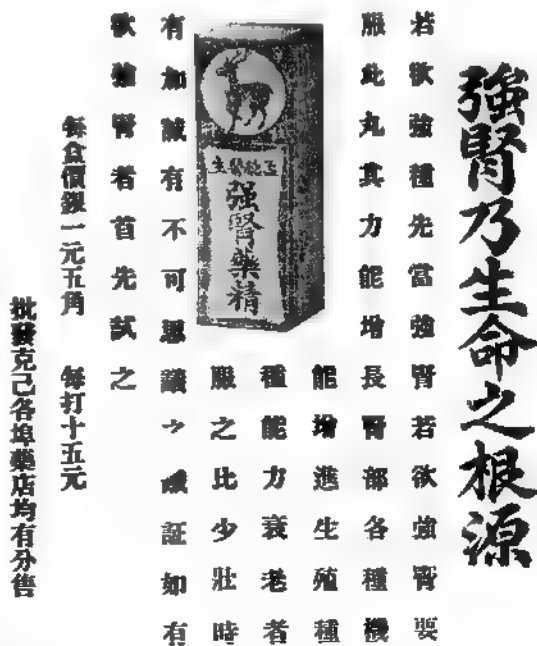 強腎乃生命之根源
若欲強種先當強腎若欲強腎要
服此丸其力能增長腎部各種機
能增進生殖種
種能力衰老者
服之比少壯時
有加誠有不可思議之証如有
欲強腎者首先試之
醫生
强腎藥精
每盒價銀一元五角 每打十五元
批發克己各埠藥店均有分售